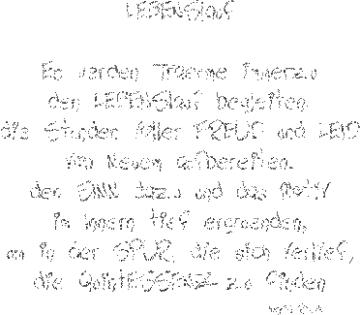 LEBENSlauf
Es werden Traeume immerzu
den LEBENSlauf begleiten
die Stunden voller FREUD und LEID
von Neuem aufbereiten.
den SINN dazu und das MOTIV
im Innern tief ergruenden,
um in der SPUR, die sich verlief,
die QuintESSENZ zu finden